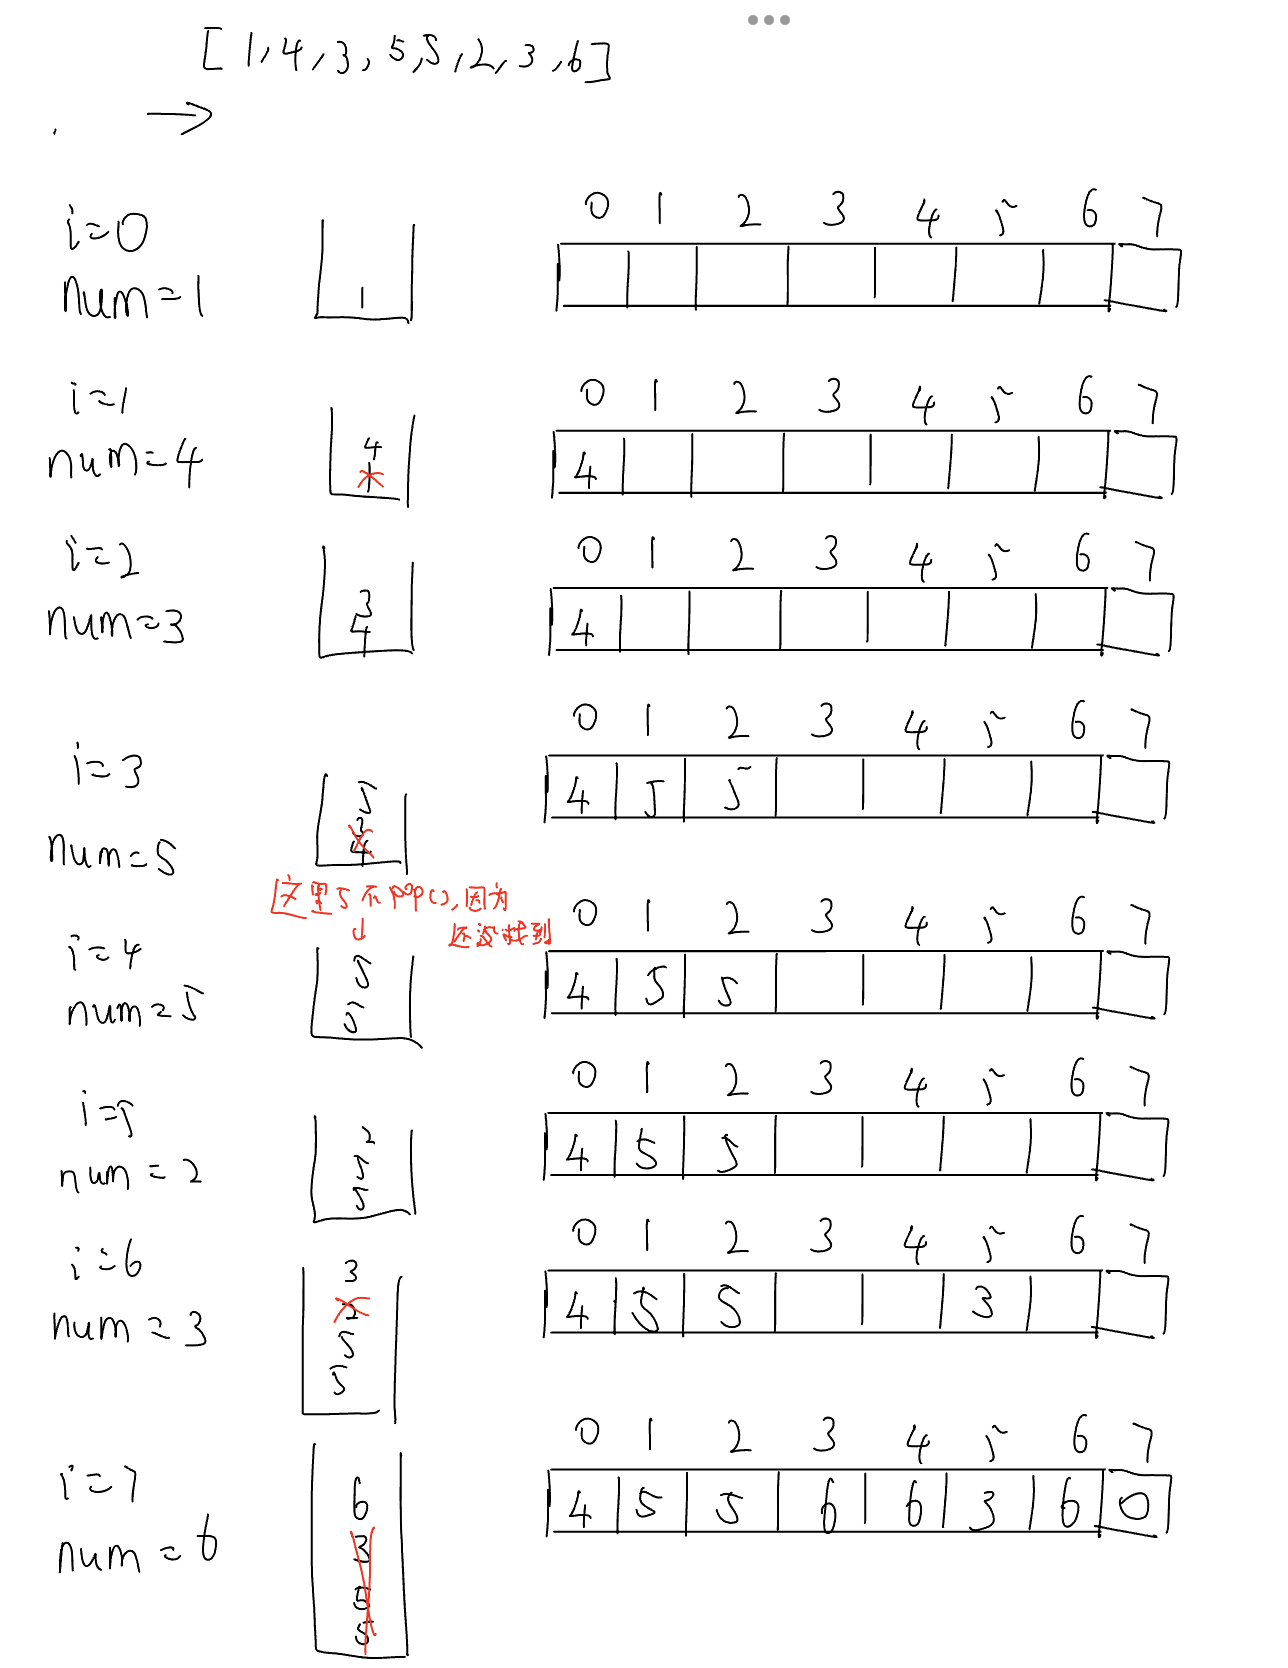 [1,4,3,5,5,2,3,6]
→
i=0
num=1
1
0 1 2 3 4 5 6 7
i=1
num=4
4
1
0 1 2 3 4 5 6 7
4
i=2
num=3
3
4
0 1 2 3 4 5 6 7
4
i=3
num=5
5
3
4
0 1 2 3 4 5 6 7
4 5 5
这里5不pop(),因为
还没找到
↓
i=4
num=5
5
5
0 1 2 3 4 5 6 7
4 5 5
i=5
num=2
2
5
5
0 1 2 3 4 5 6 7
4 5 5
i=6
num=3
3
2
5
5
0 1 2 3 4 5 6 7
4 5 5 3
i=7
num=6
6
3
5
5
0 1 2 3 4 5 6 7
4 5 5 6 6 3 6 0